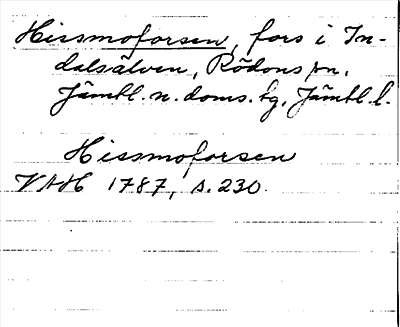 Hissmoforsen, fors i In-
dalsälven, Rödöns sn,
Jämtl. n. doms. tg, Jämtl. l.
Hissmoforsen
VAH 1787, s. 230.